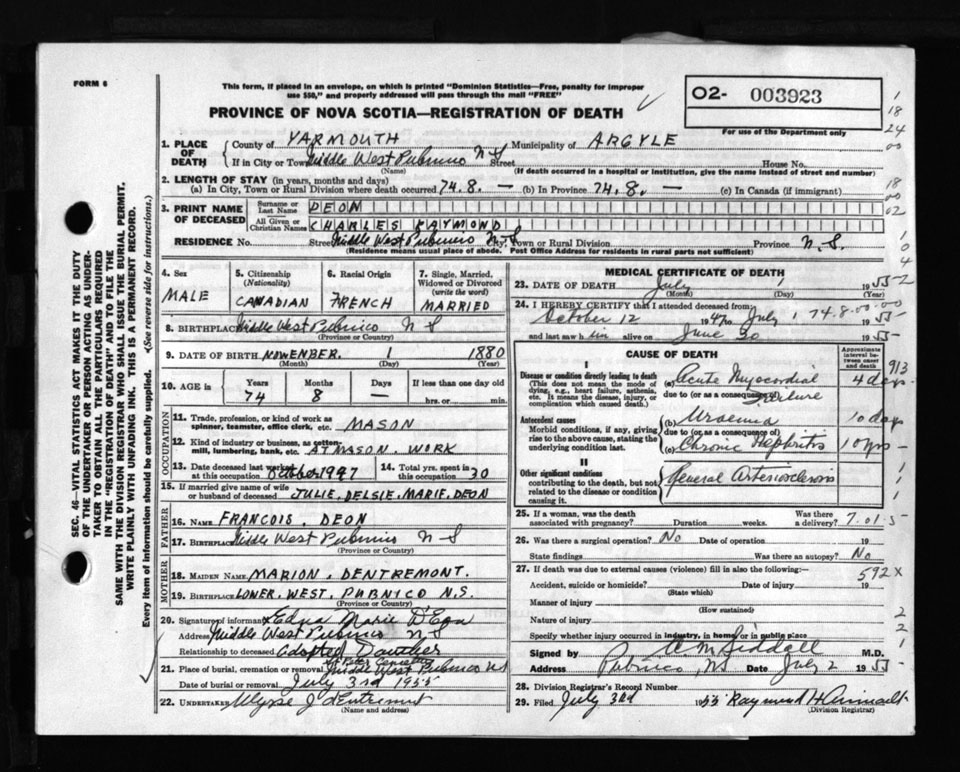 FORM 6
This form, if placed in an envelope, on which is printed "Dominion Statistics—Free, penalty for improper
use $50," and properly addressed will pass through the mail "FREE"
O2- 003923
PROVINCE OF NOVA SCOTIA—REGISTRATION OF DEATH
For use of the Department only
1. PLACE OF DEATH County of YARMOUTH Municipality of ARGYLE
If in City or Town Middle West Pubnico N S Street House No.
(Name) (If death occurred in a hospital or institution, give the name instead of street and number)
2. LENGTH OF STAY (in years, months and days)
(a) In City, Town or Rural Division where death occurred 74.8. — (b) In Province 74.8. — (c) In Canada (if immigrant)
3. PRINT NAME OF DECEASED Surname or Last Name DEON
All Given or Christian Names CHARLES RAYMOND
RESIDENCE No. Street Middle West Pubnico N.S. City, Town or Rural Division Province N.S.
(Residence means usual place of abode. Post Office Address for residents in rural parts not sufficient)
4. Sex MALE
5. Citizenship (Nationality) CANADIAN
6. Racial Origin FRENCH
7. Single, Married, Widowed or Divorced (write the word) MARRIED
8. BIRTHPLACE Middle West Pubnico N S
(Province or Country)
9. DATE OF BIRTH NOWENBER. 1 1880
(Month) (Day) (Year)
10. AGE in Years Months Days If less than one day old
74 8 — hrs. or min.
OCCUPATION
11. Trade, profession, or kind of work as spinner, teamster, office clerk, etc. MASON
12. Kind of industry or business, as cotton-mill, lumbering, bank, etc. AT MASON. WORK
13. Date deceased last worked at this occupation October 1947 14. Total yrs. spent in 30
15. If married give name of wife or husband of deceased JULIE. DELSIE. MARIE. DEON
FATHER
16. NAME FRANCOIS. DEON
17. BIRTHPLACE Middle West Pubnico N S
(Province or Country)
MOTHER
18. MAIDEN NAME MARION. DENTREMONT.
19. BIRTHPLACE LONER. WEST. PUBNICO N.S.
(Province or Country)
20. Signature of informant Edna Marie D'Eon
Address Middle West Pubnico N S
Relationship to deceased Adopted Daughter
21. Place of burial, cremation or removal St Peter Cemetery Middle West Pubnico NS
Date of burial or removal July 3rd 1955
22. UNDERTAKER Ulysse J Dentremont
(Name and address)
MEDICAL CERTIFICATE OF DEATH
23. DATE OF DEATH July 1 1955
(Month) (Day) (Year)
24. I HEREBY CERTIFY that I attended deceased from:
October 12 1947 to July 1 1955
74.8.00.00
and last saw him alive on June 30 1955
CAUSE OF DEATH
Approximate interval between onset and death
I
Disease or condition directly leading to death
(This does not mean the mode of dying, e.g., heart failure, asthenia, etc. It means the disease, injury, or complication which caused death.)
(a) Acute Myocardial Failure 4 days
due to (or as a consequence of)
Antecedent causes
Morbid conditions, if any, giving rise to the above cause, stating the underlying condition last.
(b) Uraemia 10 days
due to (or as a consequence of)
(c) Chronic Nephritis 10 yrs
II
Other significant conditions contributing to the death, but not related to the disease or condition causing it.
General Arteriosclerosis
25. If a woman, was the death associated with pregnancy? Duration weeks. Was there a delivery?
7.01.5
26. Was there a surgical operation? No Date of operation 19
State findings Was there an autopsy? No
27. If death was due to external causes (violence) fill in also the following:—
592X
Accident, suicide or homicide? Date of injury 19
(State which)
Manner of injury
(How sustained)
Nature of injury
Specify whether injury occurred in industry, in home or in public place
Signed by M.D.
Address Pubnico, NS Date July 2 1955
28. Division Registrar's Record Number
29. Filed July 3rd 1955 Raymond H
(Division Registrar)
SEC. 46—VITAL STATISTICS ACT MAKES IT THE DUTY
OF THE UNDERTAKER OR PERSON ACTING AS UNDERTAKER TO OBTAIN ALL THE PARTICULARS REQUIRED
IN THE "REGISTRATION OF DEATH" AND TO FILE THE
SAME WITH THE DIVISION REGISTRAR WHO SHALL ISSUE THE BURIAL PERMIT.
WRITE PLAINLY WITH UNFADING INK. THIS IS A PERMANENT RECORD.
Every item of information should be carefully supplied. (See reverse side for instructions.)